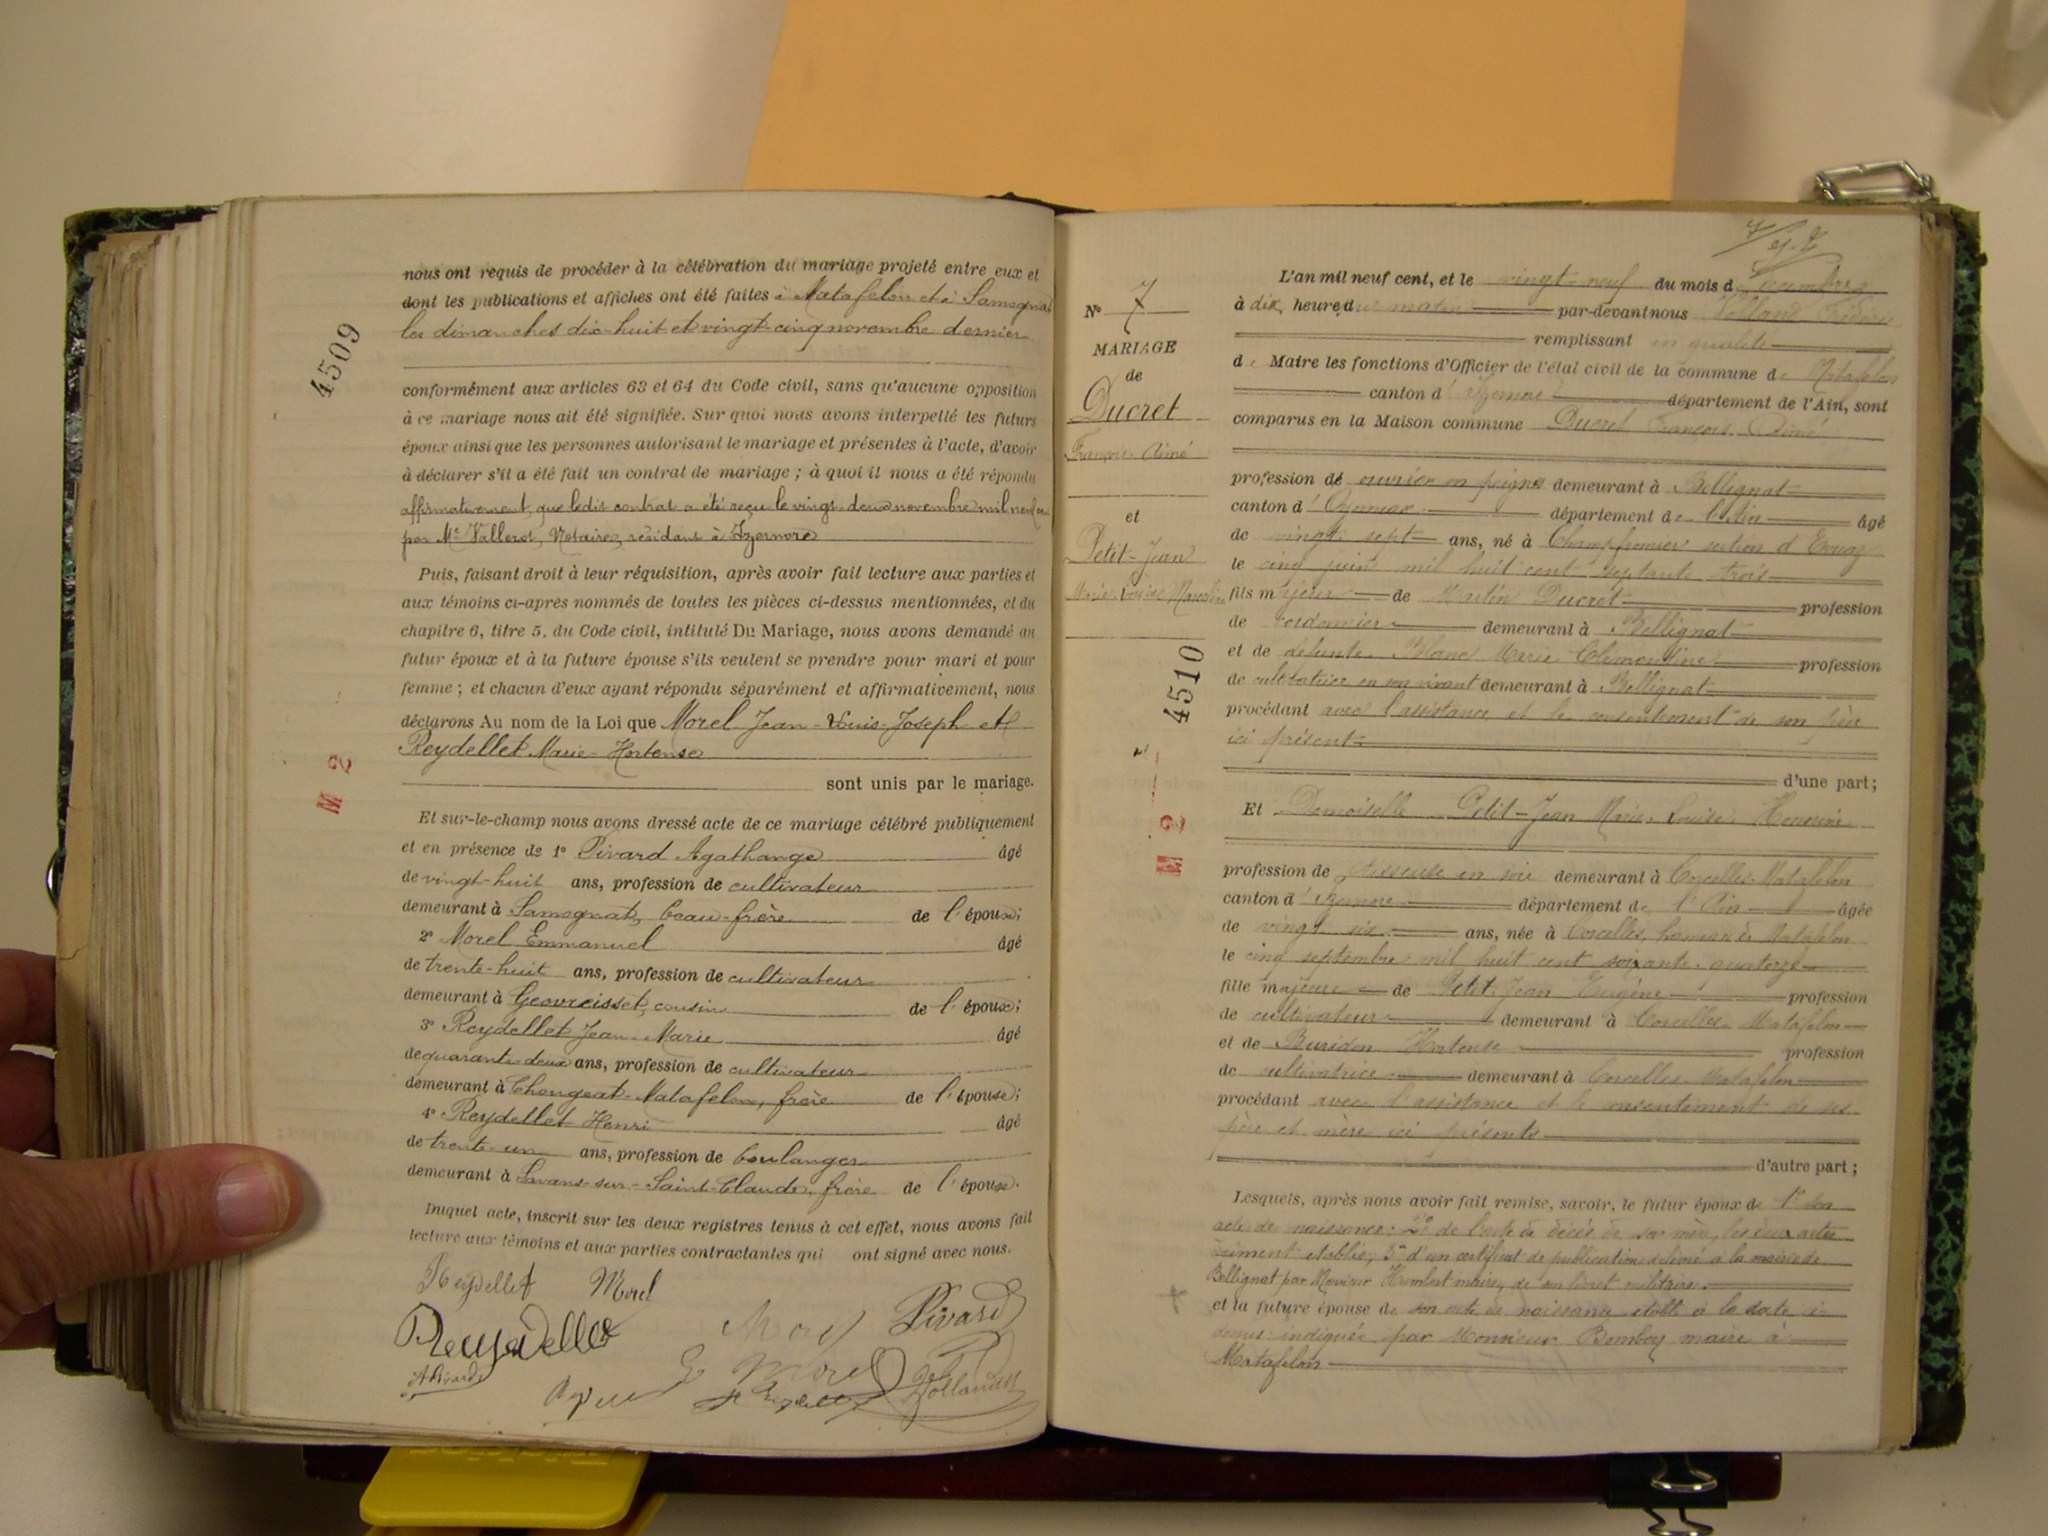 4509
nous ont requis de procéder à la célébration du mariage projeté entre eux et
dont les publications et affiches ont été faites à Matafelon et à Samognat
les dimanches dix-huit et vingt-cinq novembre dernier
conformément aux articles 63 et 64 du Code civil, sans qu'aucune opposition
à ce mariage nous ait été signifiée. Sur quoi nous avons interpellé les futurs
époux ainsi que les personnes autorisant le mariage et présentes à l'acte, d'avoir
à déclarer s'il a été fait un contrat de mariage ; à quoi il nous a été répondu
affirmativement, que ledit contrat a été reçu le vingt deux novembre mil neuf cent
par Me Vallerot, Notaire, résidant à Izernore
Puis, faisant droit à leur réquisition, après avoir fait lecture aux parties et
aux témoins ci-après nommés de toutes les pièces ci-dessus mentionnées, et du
chapitre 6, titre 5, du Code civil, intitulé Du Mariage, nous avons demandé au
futur époux et à la future épouse s'ils veulent se prendre pour mari et pour
femme ; et chacun d'eux ayant répondu séparément et affirmativement, nous
déclarons Au nom de la Loi que Morel Jean-Louis-Joseph et
Reydellet Marie-Hortense
sont unis par le mariage.
M 2
Et sur-le-champ nous avons dressé acte de ce mariage célébré publiquement
et en présence de 1° Pivard Agathange âgé
de vingt-huit ans, profession de cultivateur
demeurant à Samognat, beau-frère de l'époux;
2° Morel Emmanuel âgé
de trente-huit ans, profession de cultivateur
demeurant à Géovreisset, cousin de l'époux;
3° Reydellet Jean-Marie âgé
de quarante-deux ans, profession de cultivateur
demeurant à Chougeat-Matafelon, frère de l'épouse;
4° Reydellet Henri âgé
de trente-un ans, profession de boulanger
demeurant à Lavans-sur-Saint-Claude, frère de l'épouse.
Duquel acte, inscrit sur les deux registres tenus à cet effet, nous avons fait
lecture aux témoins et aux parties contractantes qui ont signé avec nous.
Reydellet Morel
Reydellet Morel Pivard
E Morel
N° 7
MARIAGE
de
Ducret
François-Aimé
et
Petit-Jean
Marie Louise
4510
M 2
L'an mil neuf cent, et le vingt-neuf du mois de Décembre
à dix heures du matin par-devant nous Volland Frédéric
remplissant en qualité
de Maire les fonctions d'Officier de l'état civil de la commune de Matafelon
canton d'Izernore département de l'Ain, sont
comparus en la Maison commune Ducret François Aimé
profession de ouvrier en peignes demeurant à Bellignat
canton d'Oyonnax département de l'Ain âgé
de vingt sept ans, né à Champfromier section d'
le cinq juin mil huit cent septante trois
fils majeur de Martin Ducret profession
de cordonnier demeurant à Bellignat
et de défunte Blanc Marie Clémentine profession
de cultivatrice en son vivant demeurant à Bellignat
procédant avec l'assistance et le consentement de son père
ici présent
d'une part;
Et Demoiselle Petit-Jean Marie Louise
profession de tisseuse en soie demeurant à Corcelles-Matafelon
canton d'Izernore département de l'Ain âgée
de vingt six ans, née à Corcelles, hameau de Matafelon
le cinq septembre mil huit cent soixante-quatorze
fille majeure de Petit-Jean Eugène profession
de cultivateur demeurant à Corcelles-Matafelon
et de Buridon Hortense profession
de cultivatrice demeurant à Corcelles-Matafelon
procédant avec l'assistance et le consentement de ses
père et mère ici présents
d'autre part;
Lesquels, après nous avoir fait remise, savoir, le futur époux de 1° son
acte de naissance; 2° de l'acte de décès de sa mère, les deux actes
dûment établis; 3° d'un certificat de publication délivré à la mairie de
Bellignat par Monsieur Humbert maire, de son livret militaire.
et la future épouse de son acte de naissance établi à la date ci-
dessus indiquée par Monsieur maire à
Matafelon